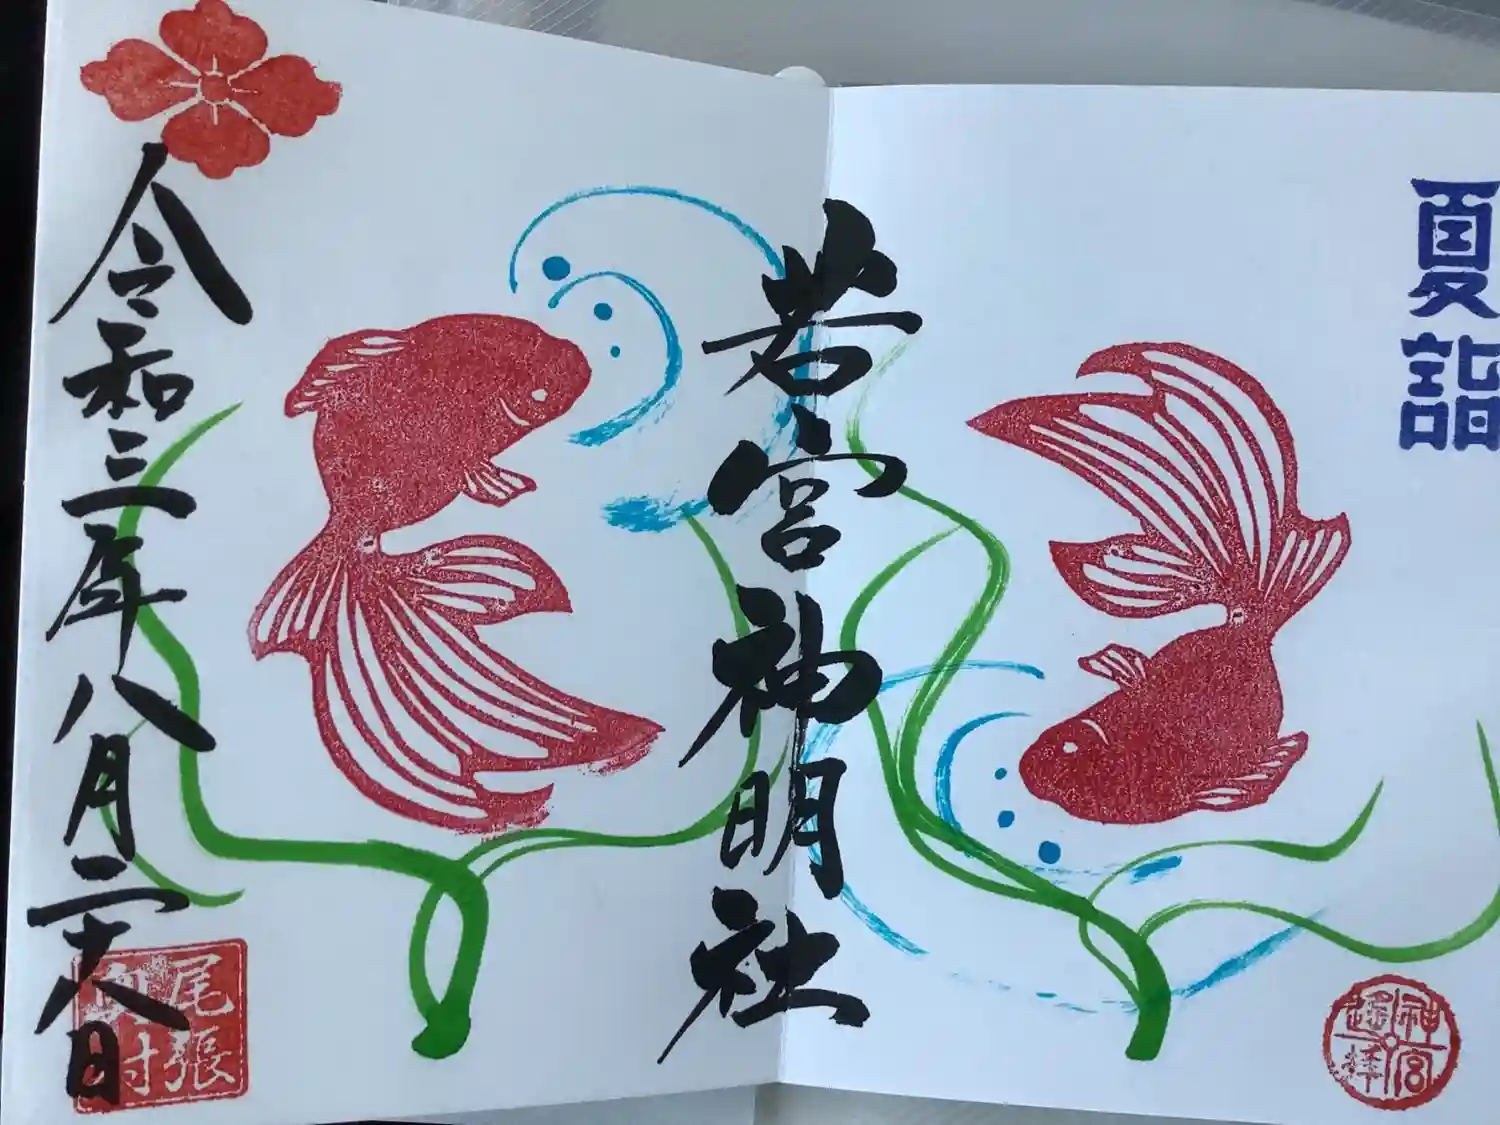 夏詣
神宮
遙拝
若宮神明社
令和三年八月二十八日
尾張